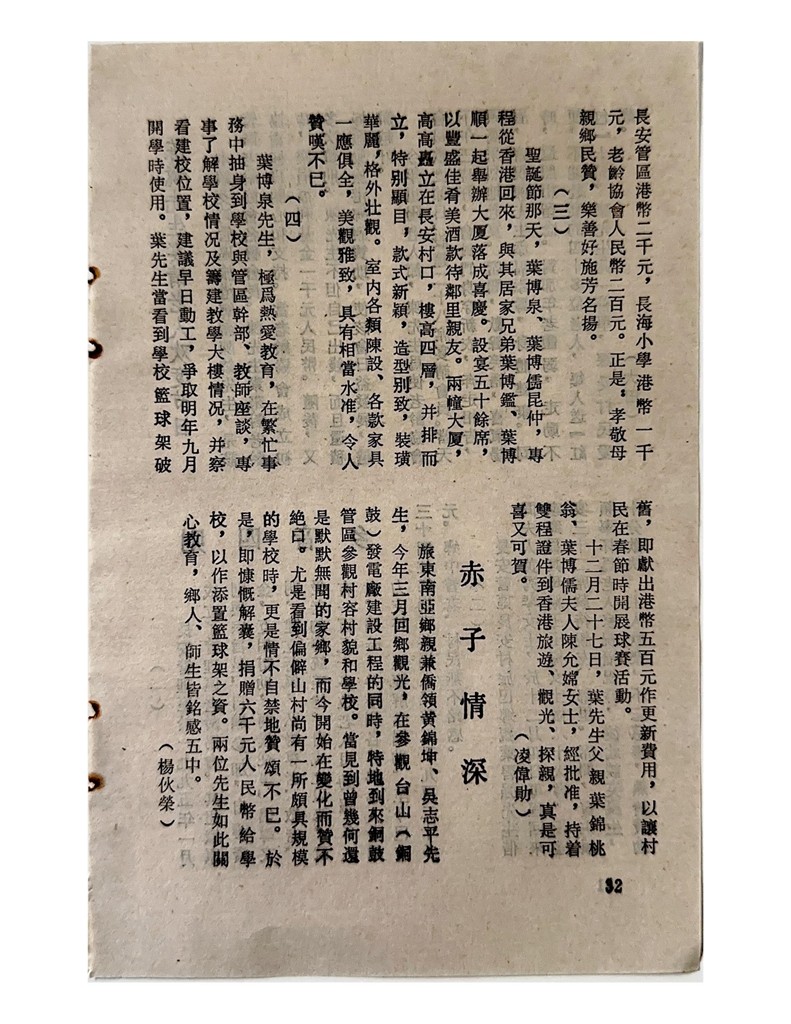 長安管區港幣二千元，長海小學港幣一千
元，老齡協會人民幣二百元。正是：孝敬母
親鄉民贊，樂善好施芳名揚。
（三）
聖誕節那天，葉博泉、葉博儒昆仲，專
程從香港回來，與其居家兄弟葉博鑑、葉博
順一起舉辦大厦落成喜慶。設宴五十餘席，
以豐盛佳肴美酒款待鄰里親友。兩幢大厦，
高高矗立在長安村口，樓高四層，并排而
立，特别顯目，款式新穎，造型别致，裝璜
華麗，格外壯觀。室内各類陳設、各款家具
一應俱全，美觀雅致，具有相當水准，令人
贊嘆不已。
（四）
葉博泉先生，極爲熱愛教育，在繁忙事
務中抽身到學校與管區幹部、教師座談，專
事了解學校情况及籌建教學大樓情况，并察
看建校位置，建議早日動工，爭取明年九月
開學時使用。葉先生當看到學校籃球架破
舊，即獻出港幣五百元作更新費用，以讓村
民在春節時開展球賽活動。
十二月二十七日，葉先生父親葉錦桃
翁、葉博儒夫人陳允嫦女士，經批准，持着
雙程證件到香港旅遊、觀光、探親，真是可
喜又可賀。
（凌偉勛）
赤子情深
旅東南亞鄉親兼僑領黄錦坤、吴志平先
生，今年三月回鄉觀光，在參觀台山（銅
鼓）發電廠建設工程的同時，特地到來銅鼓
管區參觀村容村貌和學校。當見到曾幾何還
是默默無聞的家鄉，而今開始在變化而贊不
絶口。尤是看到偏僻山村尚有一所頗具規模
的學校時，更是情不自禁地贊頌不已。於
是，即慷慨解囊，捐贈六千元人民幣給學
校，以作添置籃球架之資。兩位先生如此關
心教育，鄉人、師生皆銘感五中。
（楊伙榮）
32